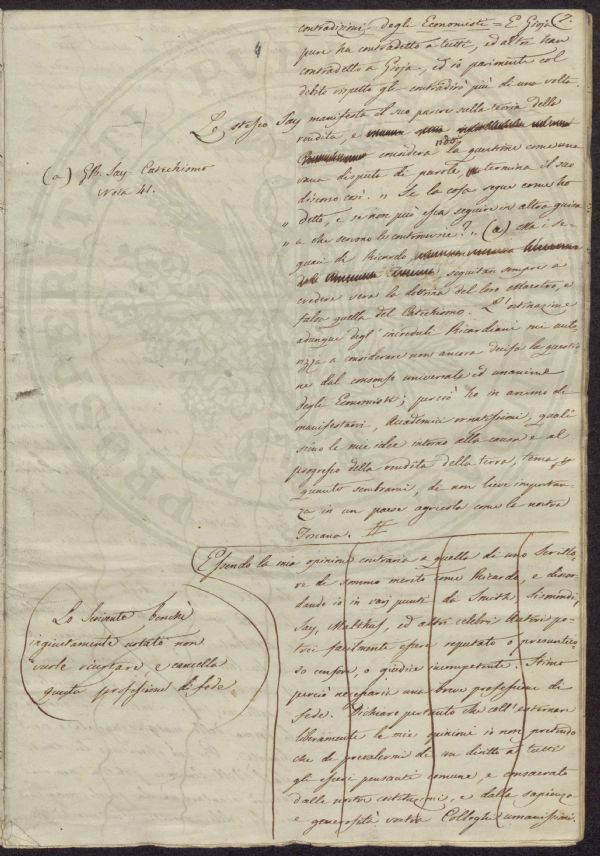 contradizioni degli Economisti = E Gioja (?.
pure ha contradetto a tutti, ed altri han
contradetto a Gioja, ed io parimente col
debito rispetto gli contradirò più di una volta.
Lo stesso Say manifesta il suo parere sulla teoria della
rendita, e
considerando la questione come una
vana disputa di parole, termina il suo
discorso così. „ Se la cosa segue come ho
„ detto, e se non può essa seguire in altra guisa
„ a che servono le controversie? „ (a) Ma i se-
guaci di Ricardo,
seguitan sempre a
credere vera la dottrina del loro maestro, e
falsa quella del Catechismo. L'ostinazione
adunque degl' increduli Ricardiani me auto
rizza a considerare non ancora decisa la questio
ne dal consenso universale ed unanime
degli Economisti; perciò ho in animo di
manifestarvi, Accademici ornatissimi, quali
sieno le mie idee intorno alla causa e al
progresso della rendita della terra, tema, per
quanto sembrami, di non lieve importan
za in un paese agricola come la nostra
Toscana. #
(a) Gb. Say Catechismo
Nota 41.
Essendo la mia opinione contraria a quella di uno Scritto
re di sommo merito come Ricardo, e discor
dando io in varj punti da Smith Sismondi,
Say, Malthus, ed altri celebri Autori po
trei facilmente essere reputato o presuntuo
so censore, o giudice incompetente. Stimo
perciò necessaria una breve professione di
fede. Dichiaro pertanto che coll' esternare
liberamente la mia opinione io non pretendo
che di prevalermi di un diritto a tutti
gli esseri pensanti comune, e consacrato
dalle nostre costituzioni, e dalla sapienza
e generosità vostra Colleghi umanissimi.
Lo Scrivente benchè
ingiustamente urtato non
vuole ricettare e cancella
questa professione di fede